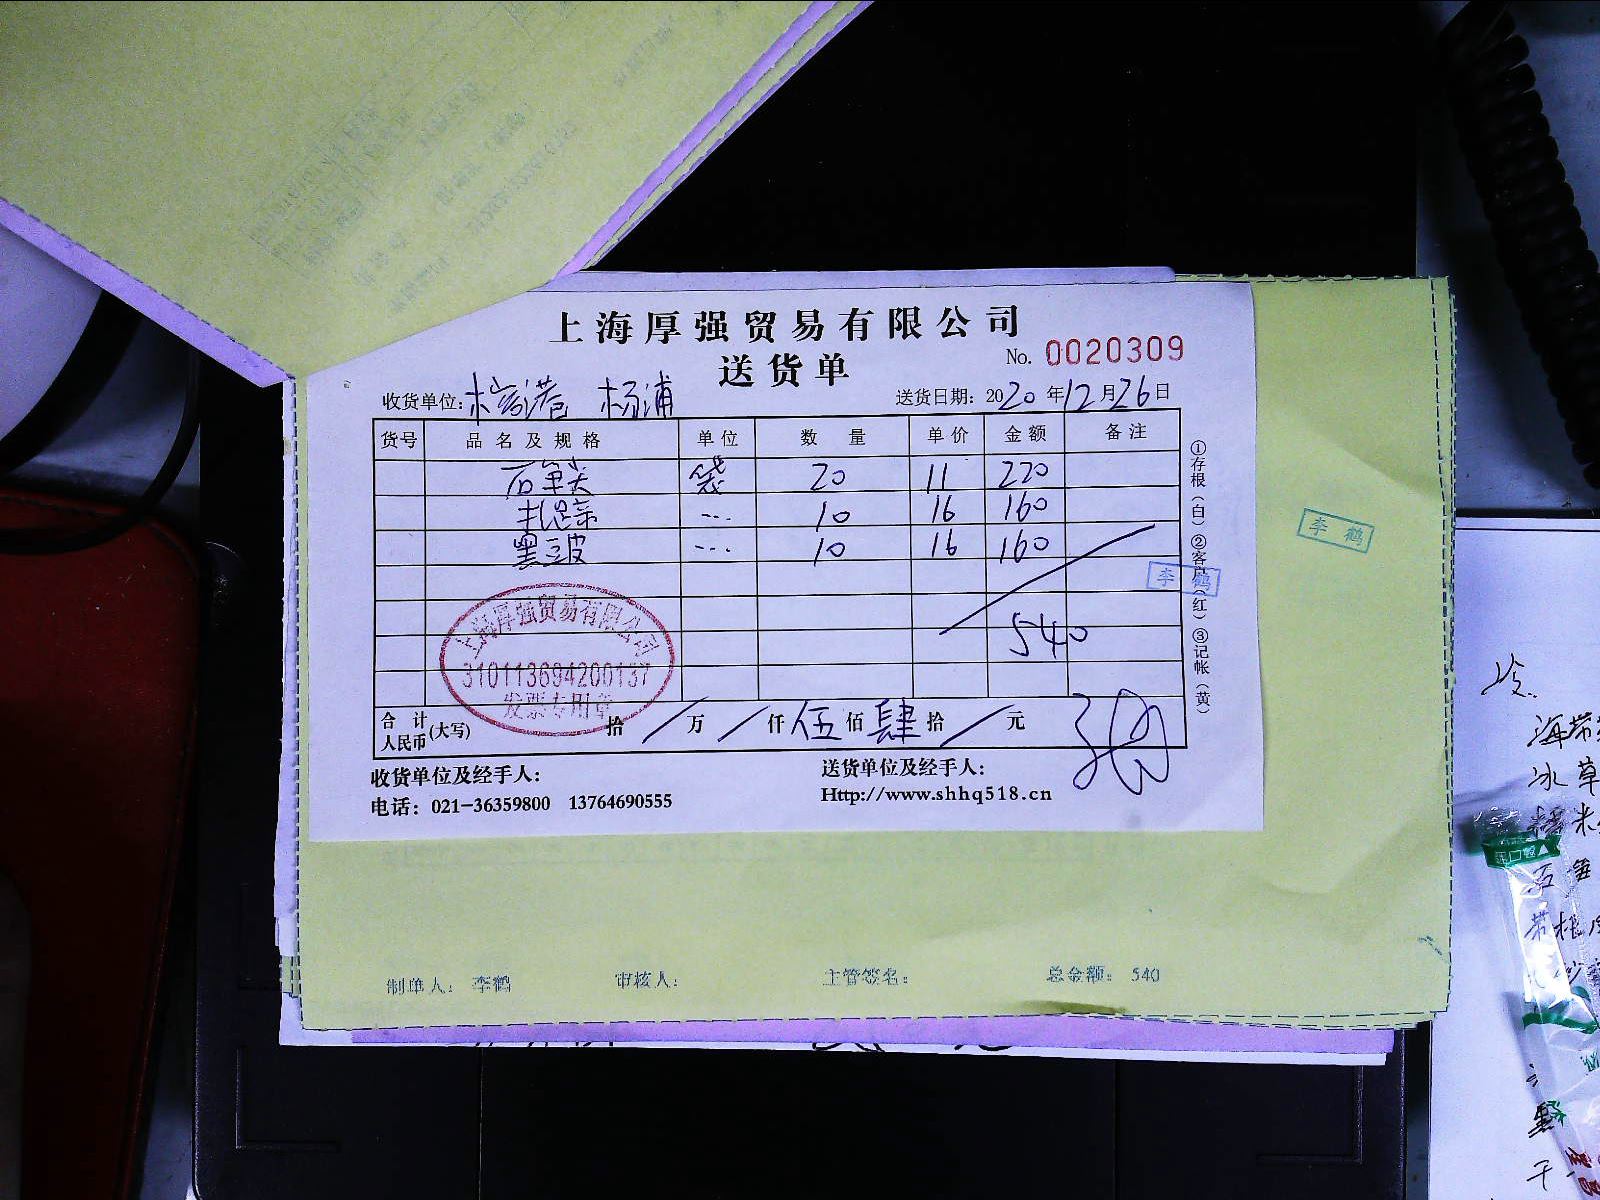 上海厚强贸易有限公司
送货单
No. 0020309
收货单位: 杨浦
送货日期: 2020年12月26日
货号 品名及规格 单位 数量 单价 金额 备注
石笋尖 袋 20 11 220
扎蹄 --- 10 16 160
黑豆皮 --- 10 16 160
540
上海厚强贸易有限公司
310113694200137
发票专用章
合计人民币(大写) 拾 / 万 / 仟 伍 佰 肆 拾 / 元
收货单位及经手人:
送货单位及经手人:
电话: 021-36359800 13764690555
Http://www.shhq518.cn
①存根(白)②客户(红)③记帐(黄)
李鹤
李鹤
制单人: 李鹤 审核人: 主管签名: 总金额: 540
冰草